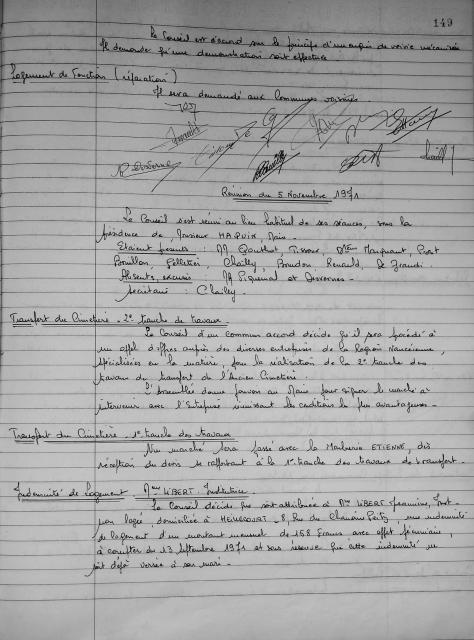 149
Le Conseil est d'accord sur le principe d'un engin de voirie mécanisée
Il demande qu'une démonstration soit effectuée
Logement de Fonction (réparation)
Il sera demandé aux Communes voisines
Réunion du 5 Novembre 1971
Le Conseil s'est réuni au lieu habituel de ses séances, sous la
présidence de Monsieur Maire.
Etaient présents : MM Gauthier, Tissoux,
Bouillon, Pelletier, Chailley, Bourdon, Renauld, De Grandi.
Absents, excusés MM Piquenal et
Secrétaire : Chailley
Transfert du Cimetière - 2e tranche de travaux
Le Conseil d'un commun accord décide qu'il sera procédé à
un appel d'offres auprès des diverses entreprises de la Région
spécialisées en la matière, pour la réalisation de la 2e tranche des
travaux de transfert de l'Ancien Cimetière.
L'assemblée donne pouvoir au Maire pour signer le marché à
intervenir avec l'Entreprise les conditions les plus avantageuses -
Transfert du Cimetière - 1e tranche des travaux
Un marché sera passé avec la Marbrerie ETIENNE, dès
réception du devis se rapportant à la 1e tranche des travaux de transfert.
Indemnité de logement Mme LIBERT Institutrice
Le Conseil décide que soit attribuée à Mme LIBERT Jeannine, Inst.
non logée domiciliée à 8, Rue du une indemnité
de logement d'un montant mensuel de 158 Francs avec effet
à compter du 13 Septembre 1971 et sous réserve que cette indemnité ne
soit déjà versée à son mari -